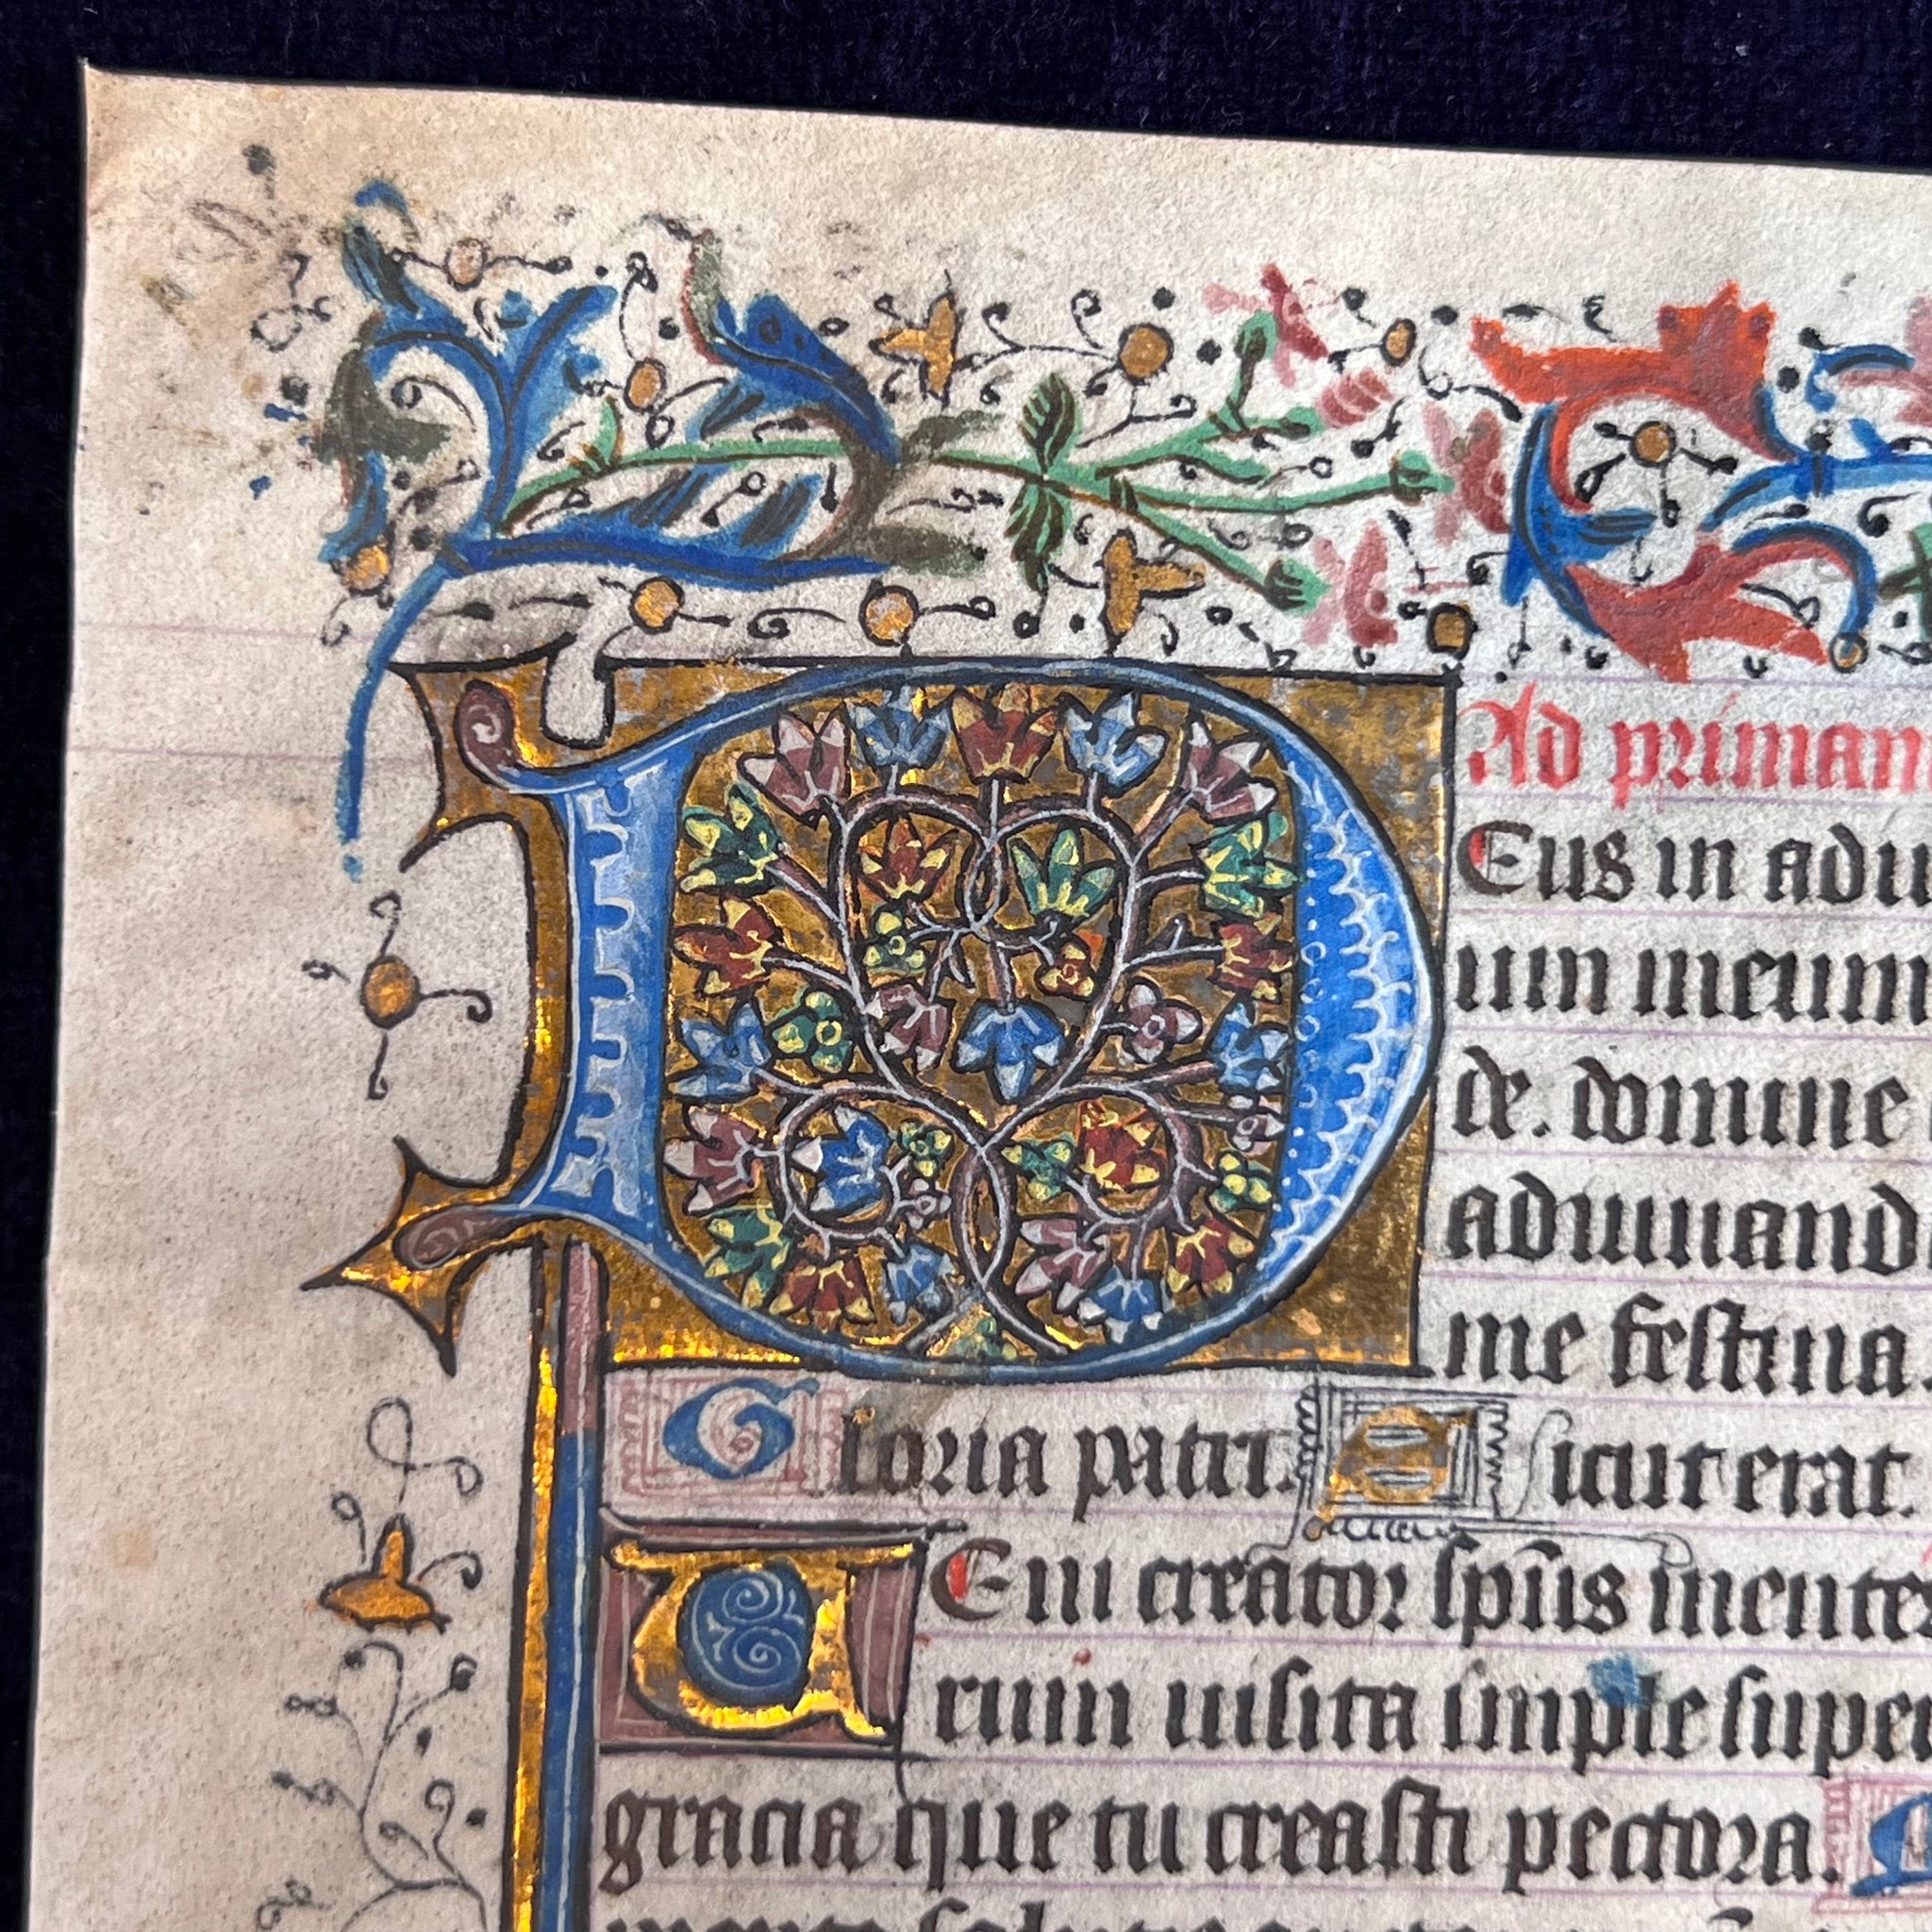 Ad priman
DEus in adiu
um meum
de. domine
adiuuand
me festina.
Gloria patri. Sicut erat.
UEni creator sp̄us mente
rum uisita imple super
gracia que tu creasti pectora.